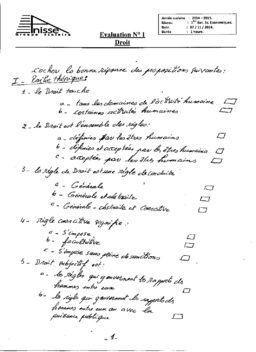 Anisse
GROUPE SCOLAIRE
Evaluation N° 1
Droit
Année scolaire : 2014 - 2015.
Niveau : 1ère Bac Sc. Economiques
Date : 07 / 11 / 2014.
Durée : 2 heures.
cocher la bonne réponse des propositions suivantes :
I - Partie théorique :
1 - Le Droit touche
a - tous les domaines de l'activité humaine
b - certaines activités humaines
2 - Le Droit est l'ensemble des règles :
a - définies par les êtres humains
b - définies et acceptées par les êtres humains
c - acceptées par les êtres humains
3 - la règle de Droit est une règle de conduite
a - Générale
b - Générale et abstraite
c - Générale - abstraite et coercitive
4 - règle coercitive signifie :
a - s'impose
b - facultative
c - s'impose sous peine de sanctions
5 - Droit objectif est :
a - les règles qui gouvernent les rapports des
hommes entre eux
b - la règle qui gouvernent les rapports des
hommes entre eux ou avec la
puissance publique
- 1 -